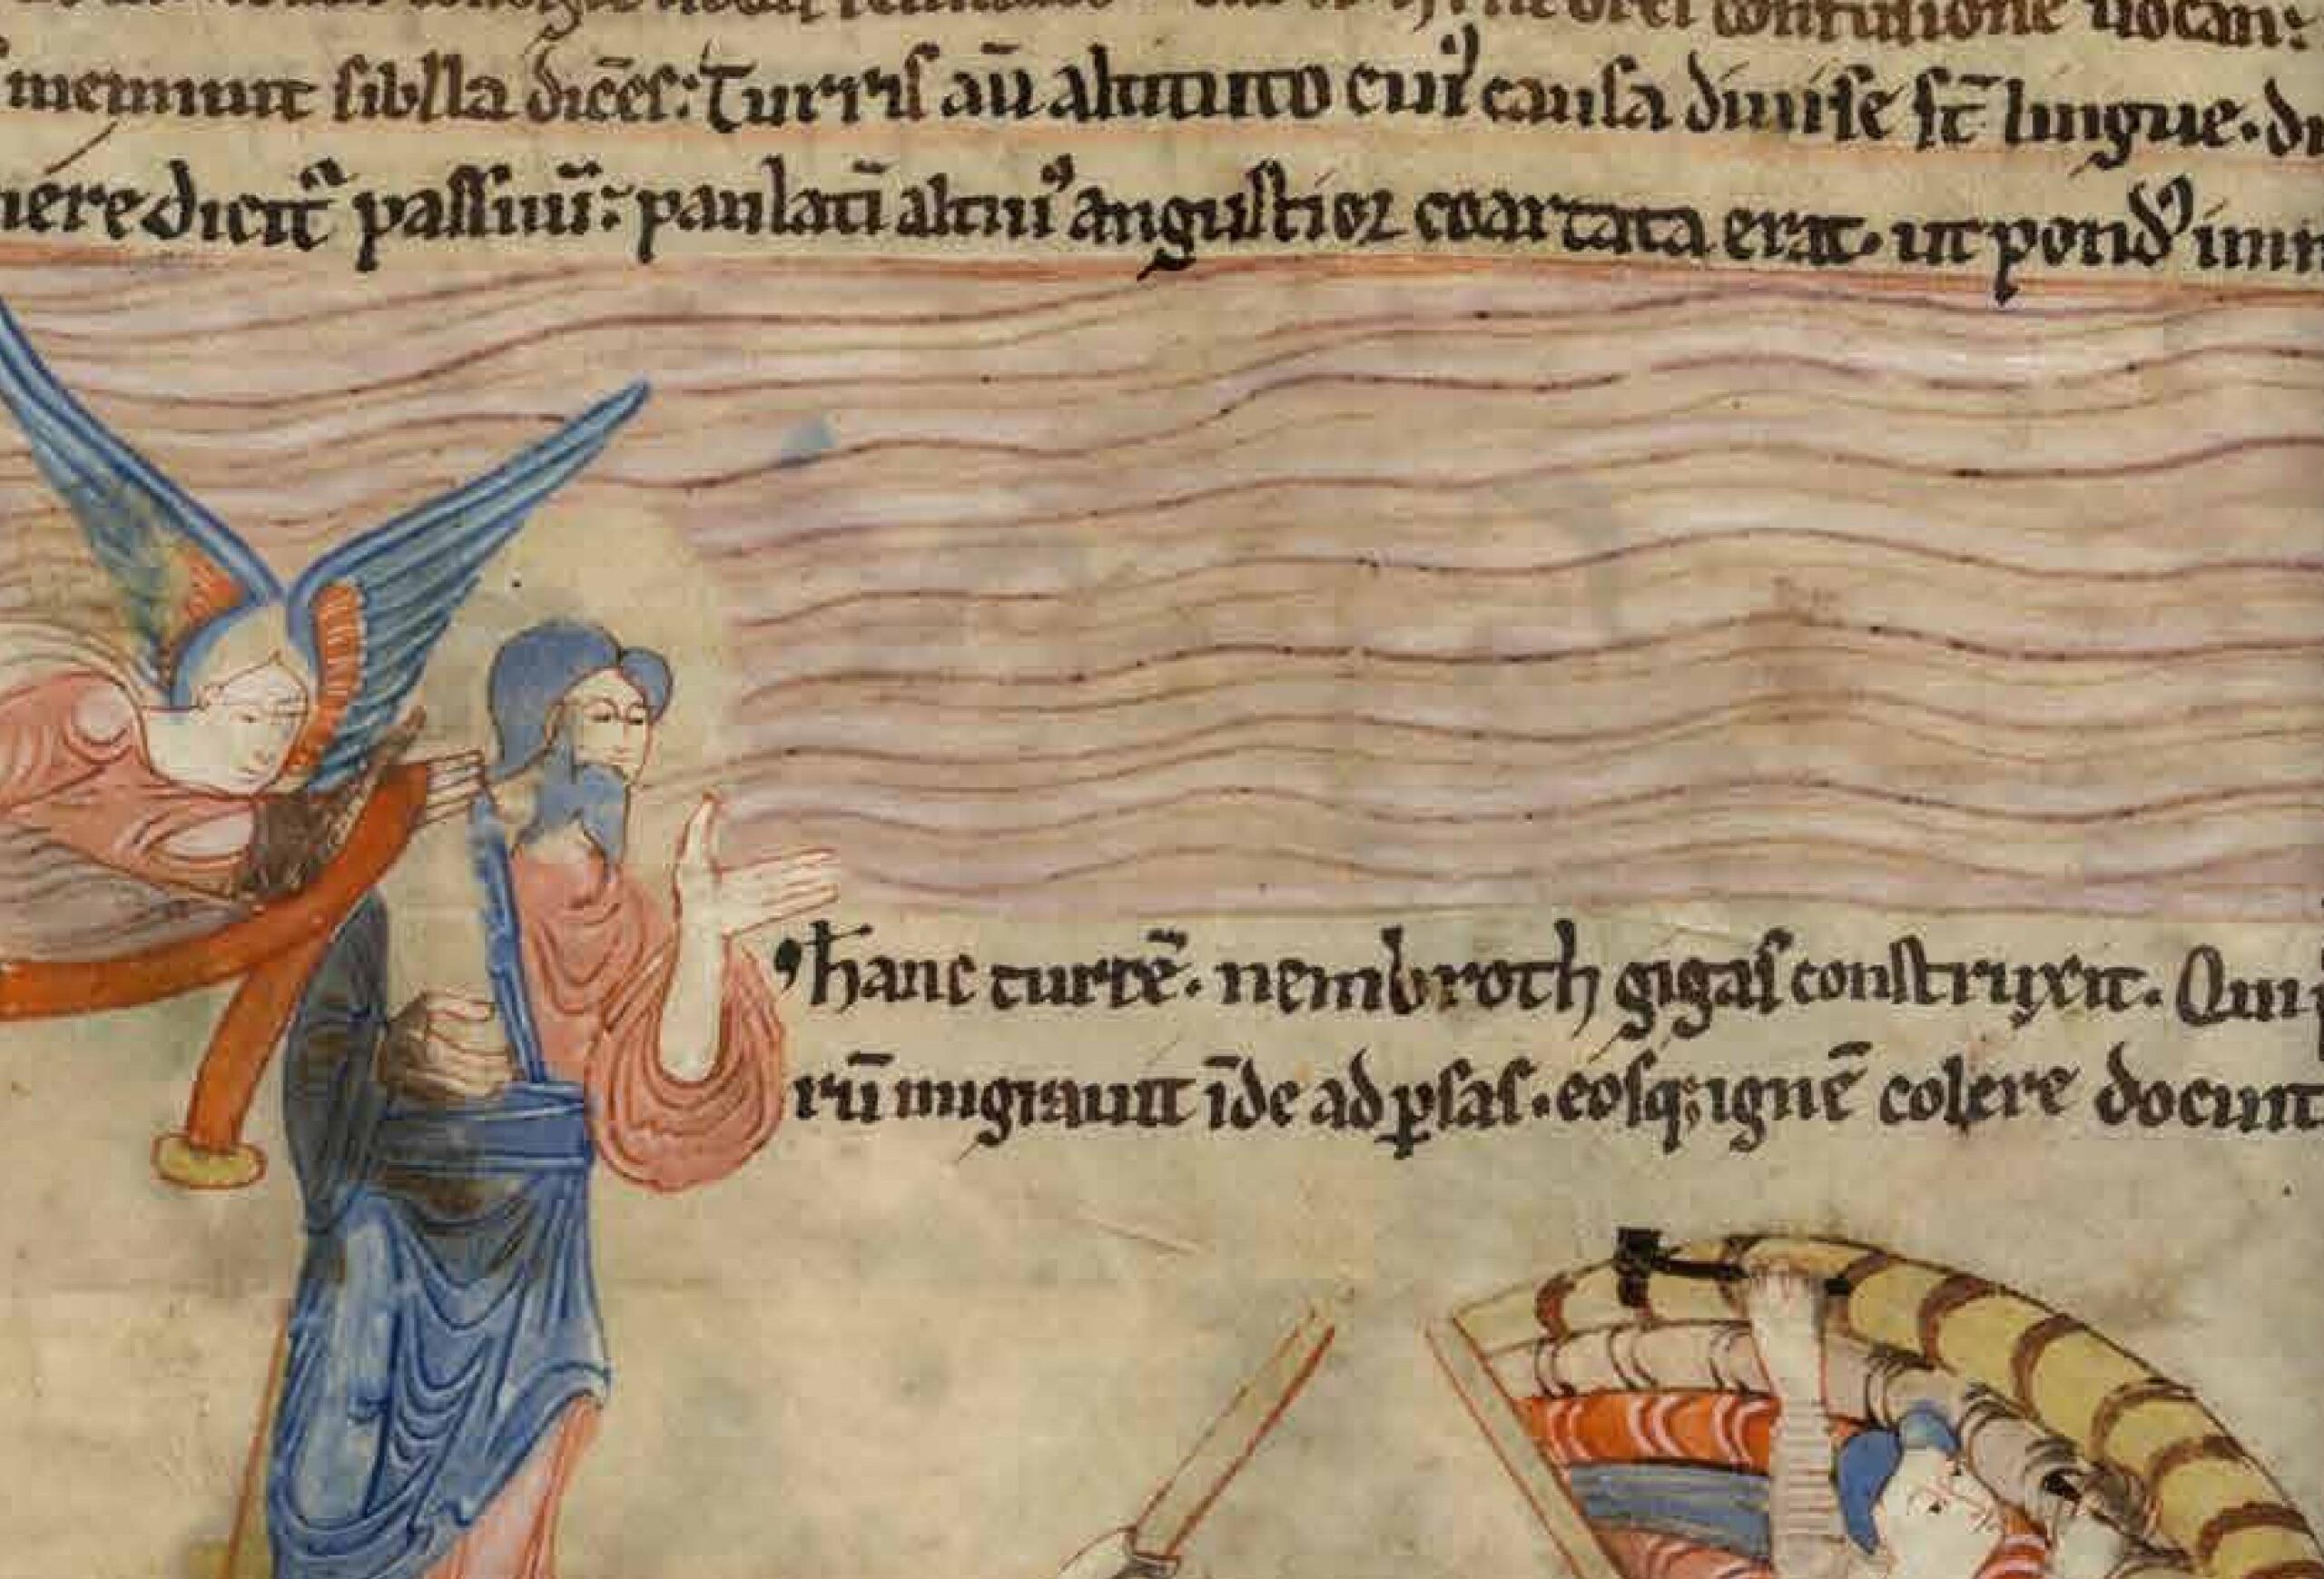 confusione uocant
meminit siblla dicēs: Turris aū altitudo cuiꝰ causa diuise sc̄ lingue. du
tenere dicit᷑ passuū: paulatī altiꝰ angustior coartata erat. ut pondꝰ immi
hanc turrē. nembroth gigas construxit. Qui
rū migrauit īde ad ꝑsas. eosq; ignē colere docuit